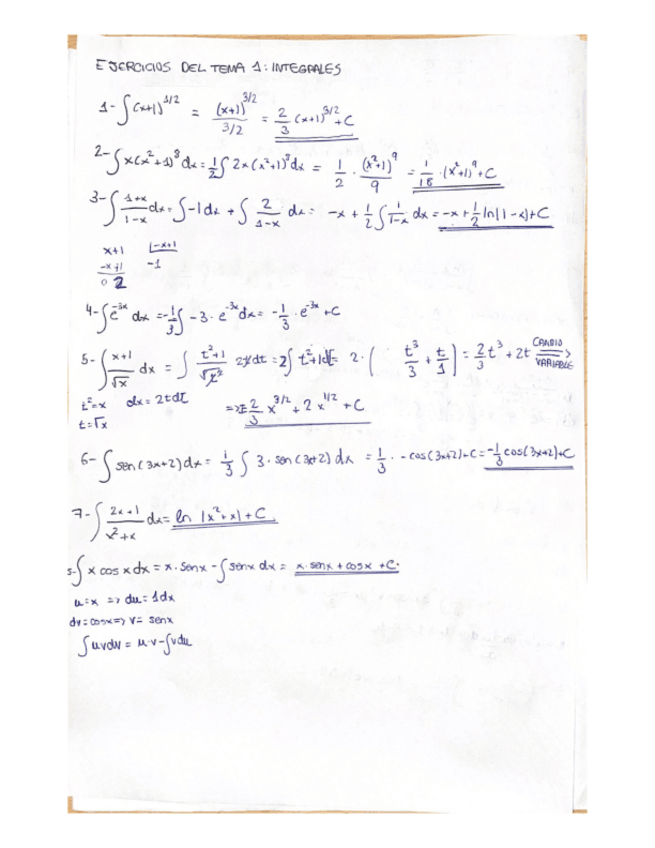 EJERCICIOS DEL TEMA 1: INTEGRALES
1- ∫(x+1)^1/2 = (x+1)^3/2 / 3/2 = 2/3 (x+1)^3/2 + C
2- ∫x(x²+1)^8 dx = 1/2 ∫2x(x²+1)^8 dx = 1/2 · (x²+1)^9 / 9 = 1/18 · (x²+1)^9 + C
3- ∫ 1+x / 1-x dx = ∫-1dx + ∫ 2 / 1-x dx = -x + 1/2 ∫ 1 / 1-x dx = -x + 1/2 ln|1-x| + C
x+1 |-x+1
-x+1 -1
0 2
4- ∫e^-3x dx = -1/3 ∫-3·e^-3x dx = -1/3 · e^-3x + C
5- ∫ x+1 / √x dx = ∫ t²+1 / √t² 2t dt = 2∫ t²+1dt = 2·( t³/3 + t/1 ) = 2/3 t³ + 2t CAMBIO VARIABLE =>
t²=x dx = 2tdt
t=√x => I= 2/3 x^3/2 + 2 x^1/2 + C
6- ∫sen(3x+2)dx = 1/3 ∫3·sen(3x+2)dx = 1/3 · -cos(3x+2)+C = -1/3 cos(3x+2)+C
7- ∫ 2x+1 / x²+x dx = ln |x²+x| + C
∫x cos x dx = x·senx - ∫senx dx = x·senx + cosx + C
u=x => du=1dx
dv=cosx => v= senx
∫uvdv = u·v-∫vdu